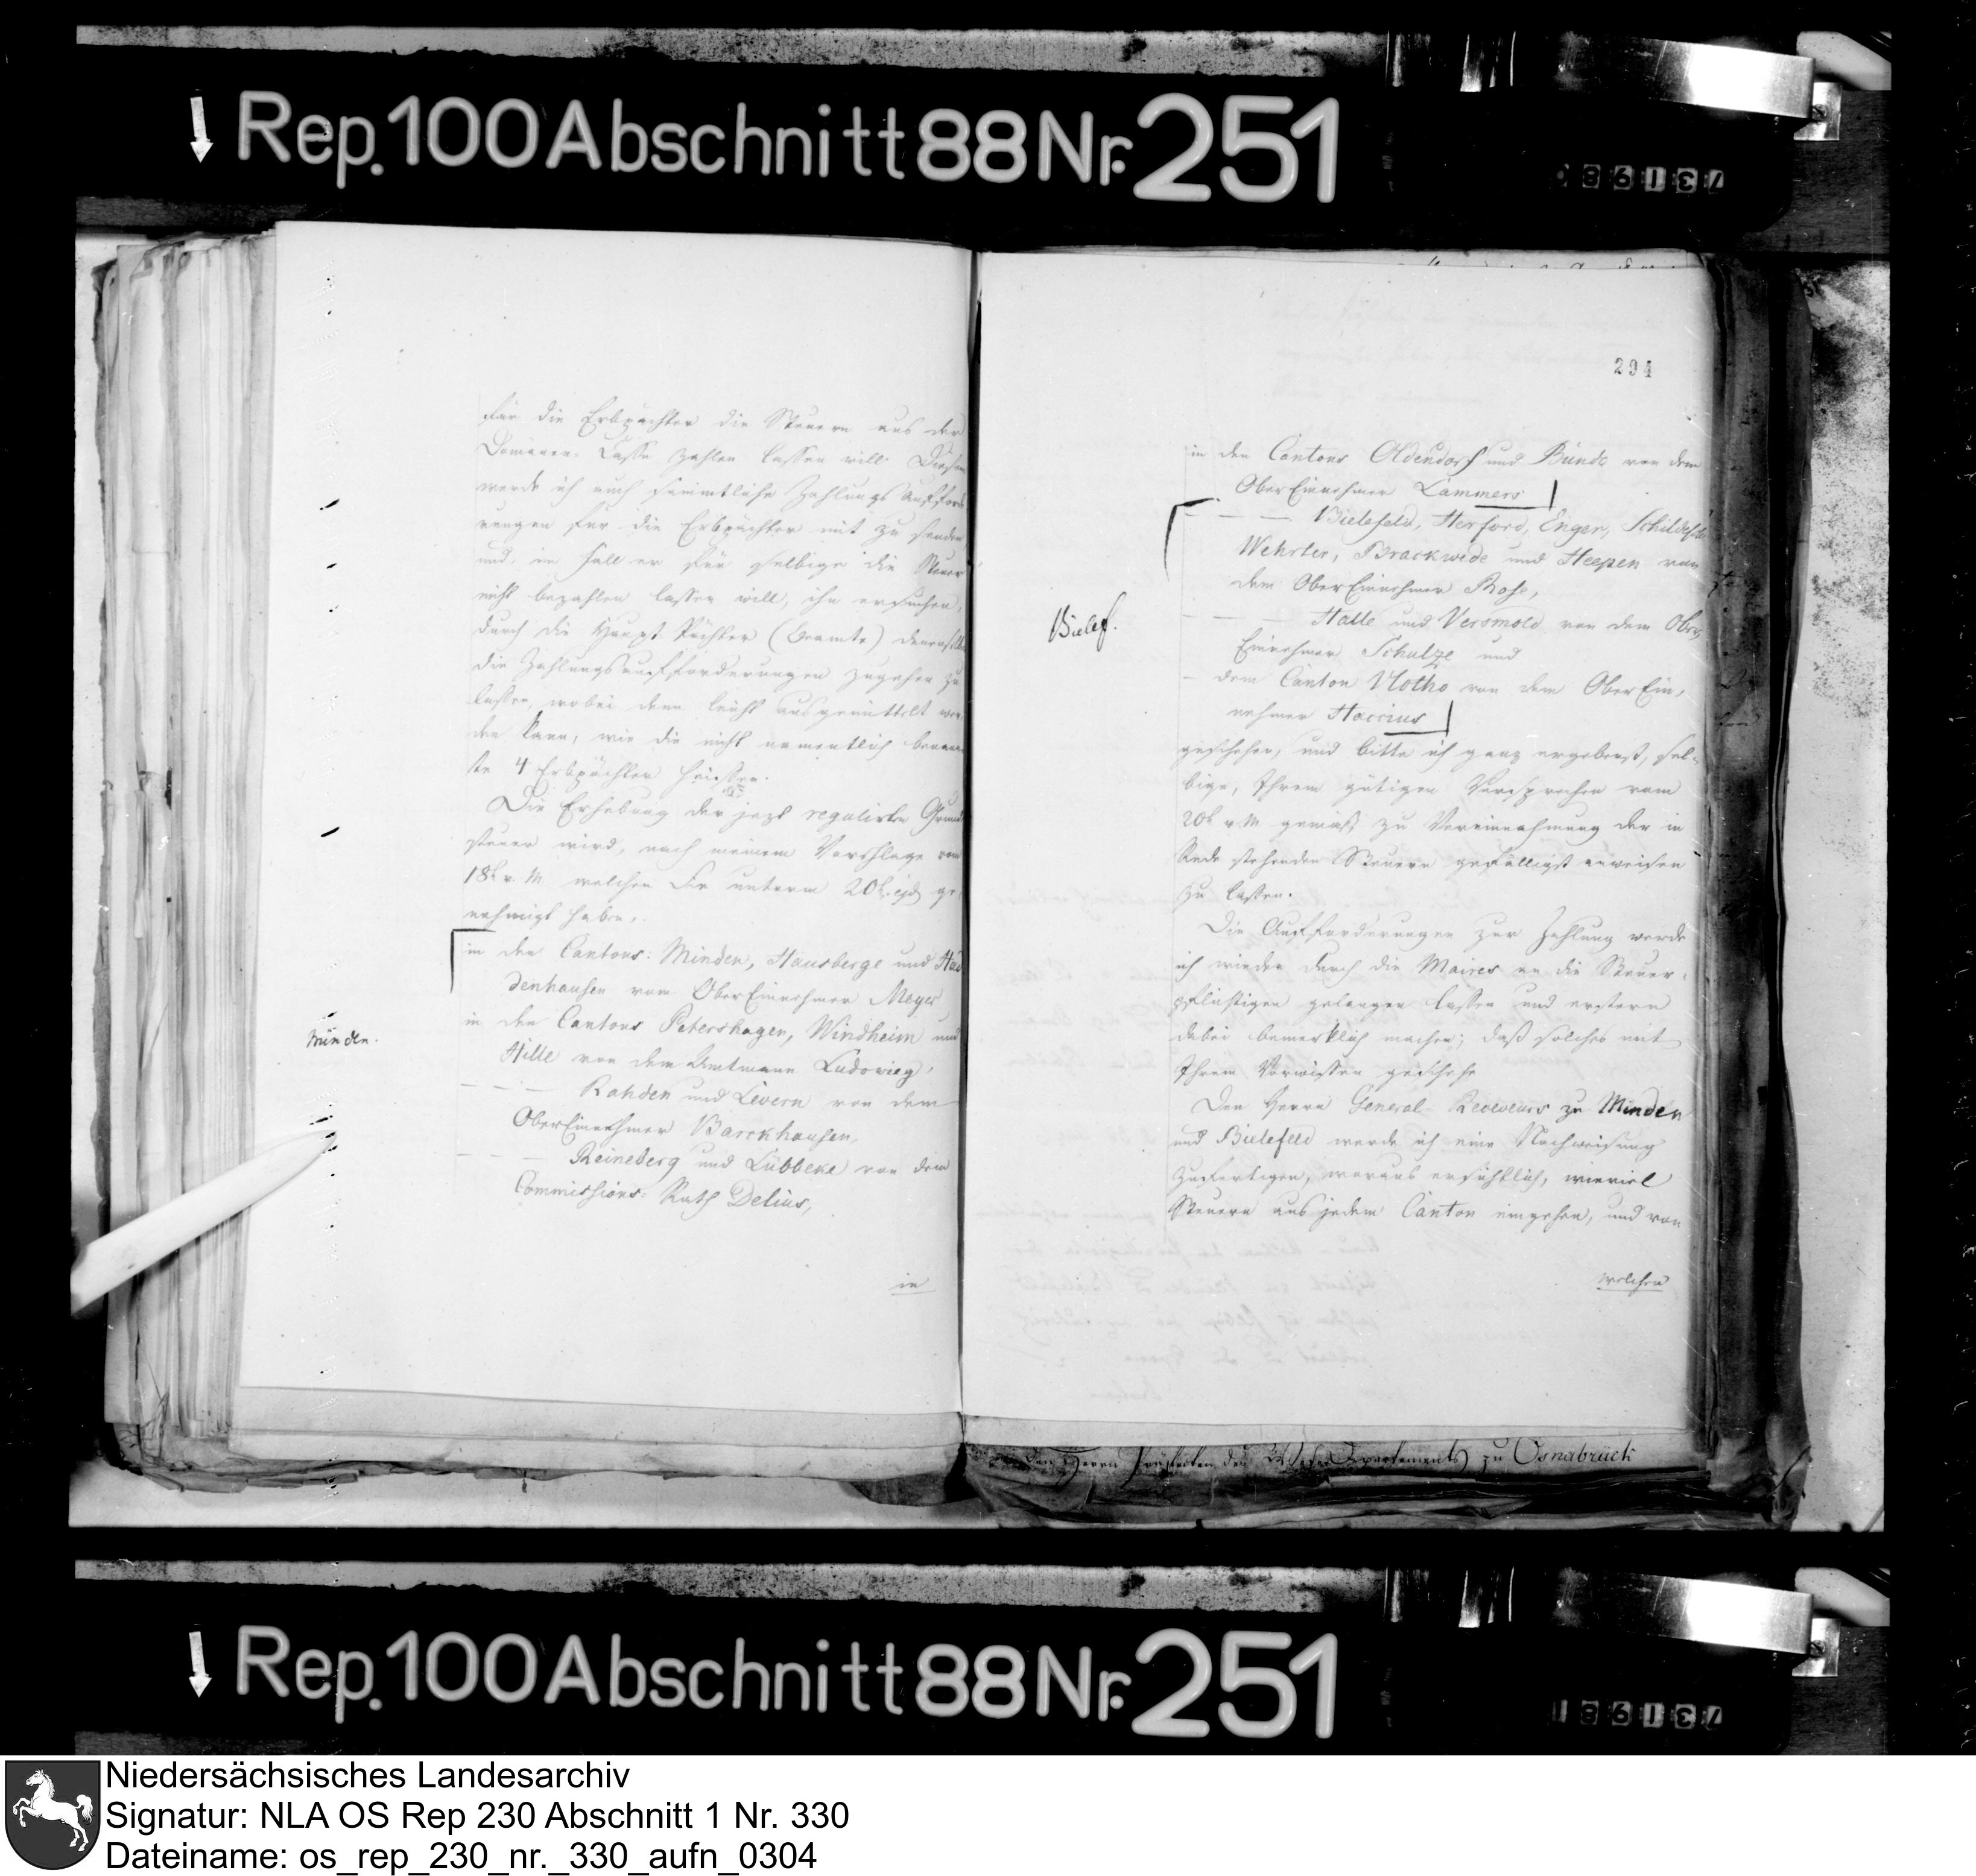 Rep. 100 Abschnitt 88 Nr. 251
für die Erbpächter die Steuern aus der
Domainen-Casse zahlen lassen will. Diesem
werde ich auch sämmtliche Zahlungs Auffforde
rungen für die Erbpächter mit zu senden
und, im Fall er für selbige die Steuer
nicht bezahlen lassen will, ihn ersuchen,
durch die Haupt Pächter (Beamte) denenselben
die Zahlungsaufforderungen zugehen zu
lassen, wobei denn leicht ausgemittelt wer-
den kann, wie die nicht namentlich benann
te 4 Erbpächter heissen.
Die Erhebung der jezt regulirten Grund
steuer wird, nach meinem Vorschlage vom
18t v. M welchen Sie unterm 20t ejd ge-
nehmigt haben,
in den Cantons: Minden, Hausberge und Had
denhausen vom OberEinnehmer Meyer
in den Cantons Petershagen, Windheim und
Minden.
Hille von dem Amtmann Ludowieg,
— — — Rahden und Levern von dem
OberEinnehmer Barckhausen,
— — — Reineberg und Lübbeke von dem
Commissions-Rath Delius,
in
294
in den Cantons Oldendorf und Bünde von dem
OberEinnehmer Lammers
— — — Bielefeld, Herford, Enger, Schildesche
Wehrter, Brackwede und Heepen von
dem OberEinnehmer Rose,
Bielef.
— — Halle und Versmold von dem Ober
Einnehmer Schulze und
— dem Canton Vlotho von dem OberEin-
nehmer Haccius
geschehen, und bitte ich ganz ergebenst, sel-
bige, Ihrem gütigen Versprechen vom
20t v. M gemäß zu Vereinnahmung der in
Rede stehenden Steuern gefälligst anweisen
zu lassen.
Die Aufforderungen zur Zahlung werde
ich wieder durch die Maires an die Steuer-
pflichtigen gelangen lassen und erstern
dabei bemerklich machen; daß solches mit
Ihrem Vorwissen geschehe
Den Herrn General-Receveurs zu Minden
und Bielefeld werde ich eine Nachweisung
zufertigen, woraus ersichtlich, wieviel
Steuern aus jedem Canton eingehen, und von
welchen
Den Herrn Präfecten des Weser Departements zu Osnabrück
Rep. 100 Abschnitt 88 Nr. 251
Niedersächsisches Landesarchiv
Signatur: NLA OS Rep 230 Abschnitt 1 Nr. 330
Dateiname: os_rep_230_nr._330_aufn_0304